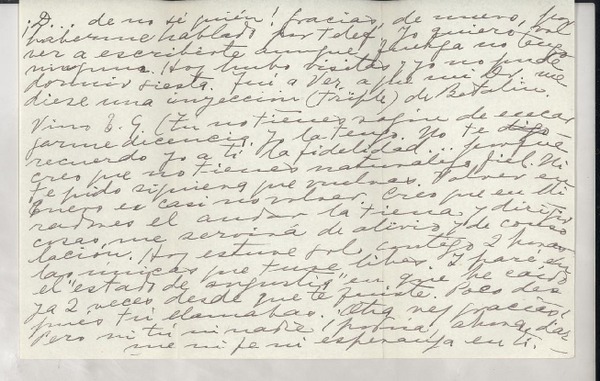 ¡D... de no sé quién! Gracias, de nuevo, por
haberme hablado por telef. Yo quiero vol
ver a escribirte aunque juenga no tengo
ninguna. Hoy hubo visitas y yo no pude
dormir siesta. Fui a ver a que mi Dr. me
diese una inyección (triple) de Betalin.
Vino E. G. (tu no tienes
garme dicencia, yo la tengo. No te digo
recuerdo yo a ti la fidelidad... porque
creo que no tienes naturaleza fiel. Ni
te pido siquiera que vuelvas. Volver en
Enero es casi no volver. Creo que en Mi
radores el andar la tierra y dirigir
cosas, me servirá de alivio y de conso
lación. Hoy estuve sola contigo 2 horas
las únicas que tuve libres. Y paré en
el "estado de angustia" en que he caído
ya 2 veces desde que te fuiste. Poco des
pués tú llamabas. Otra vez gracias!
Pero ni tú ni nadie podría ahora dar
me ni fe ni esperanza en ti.